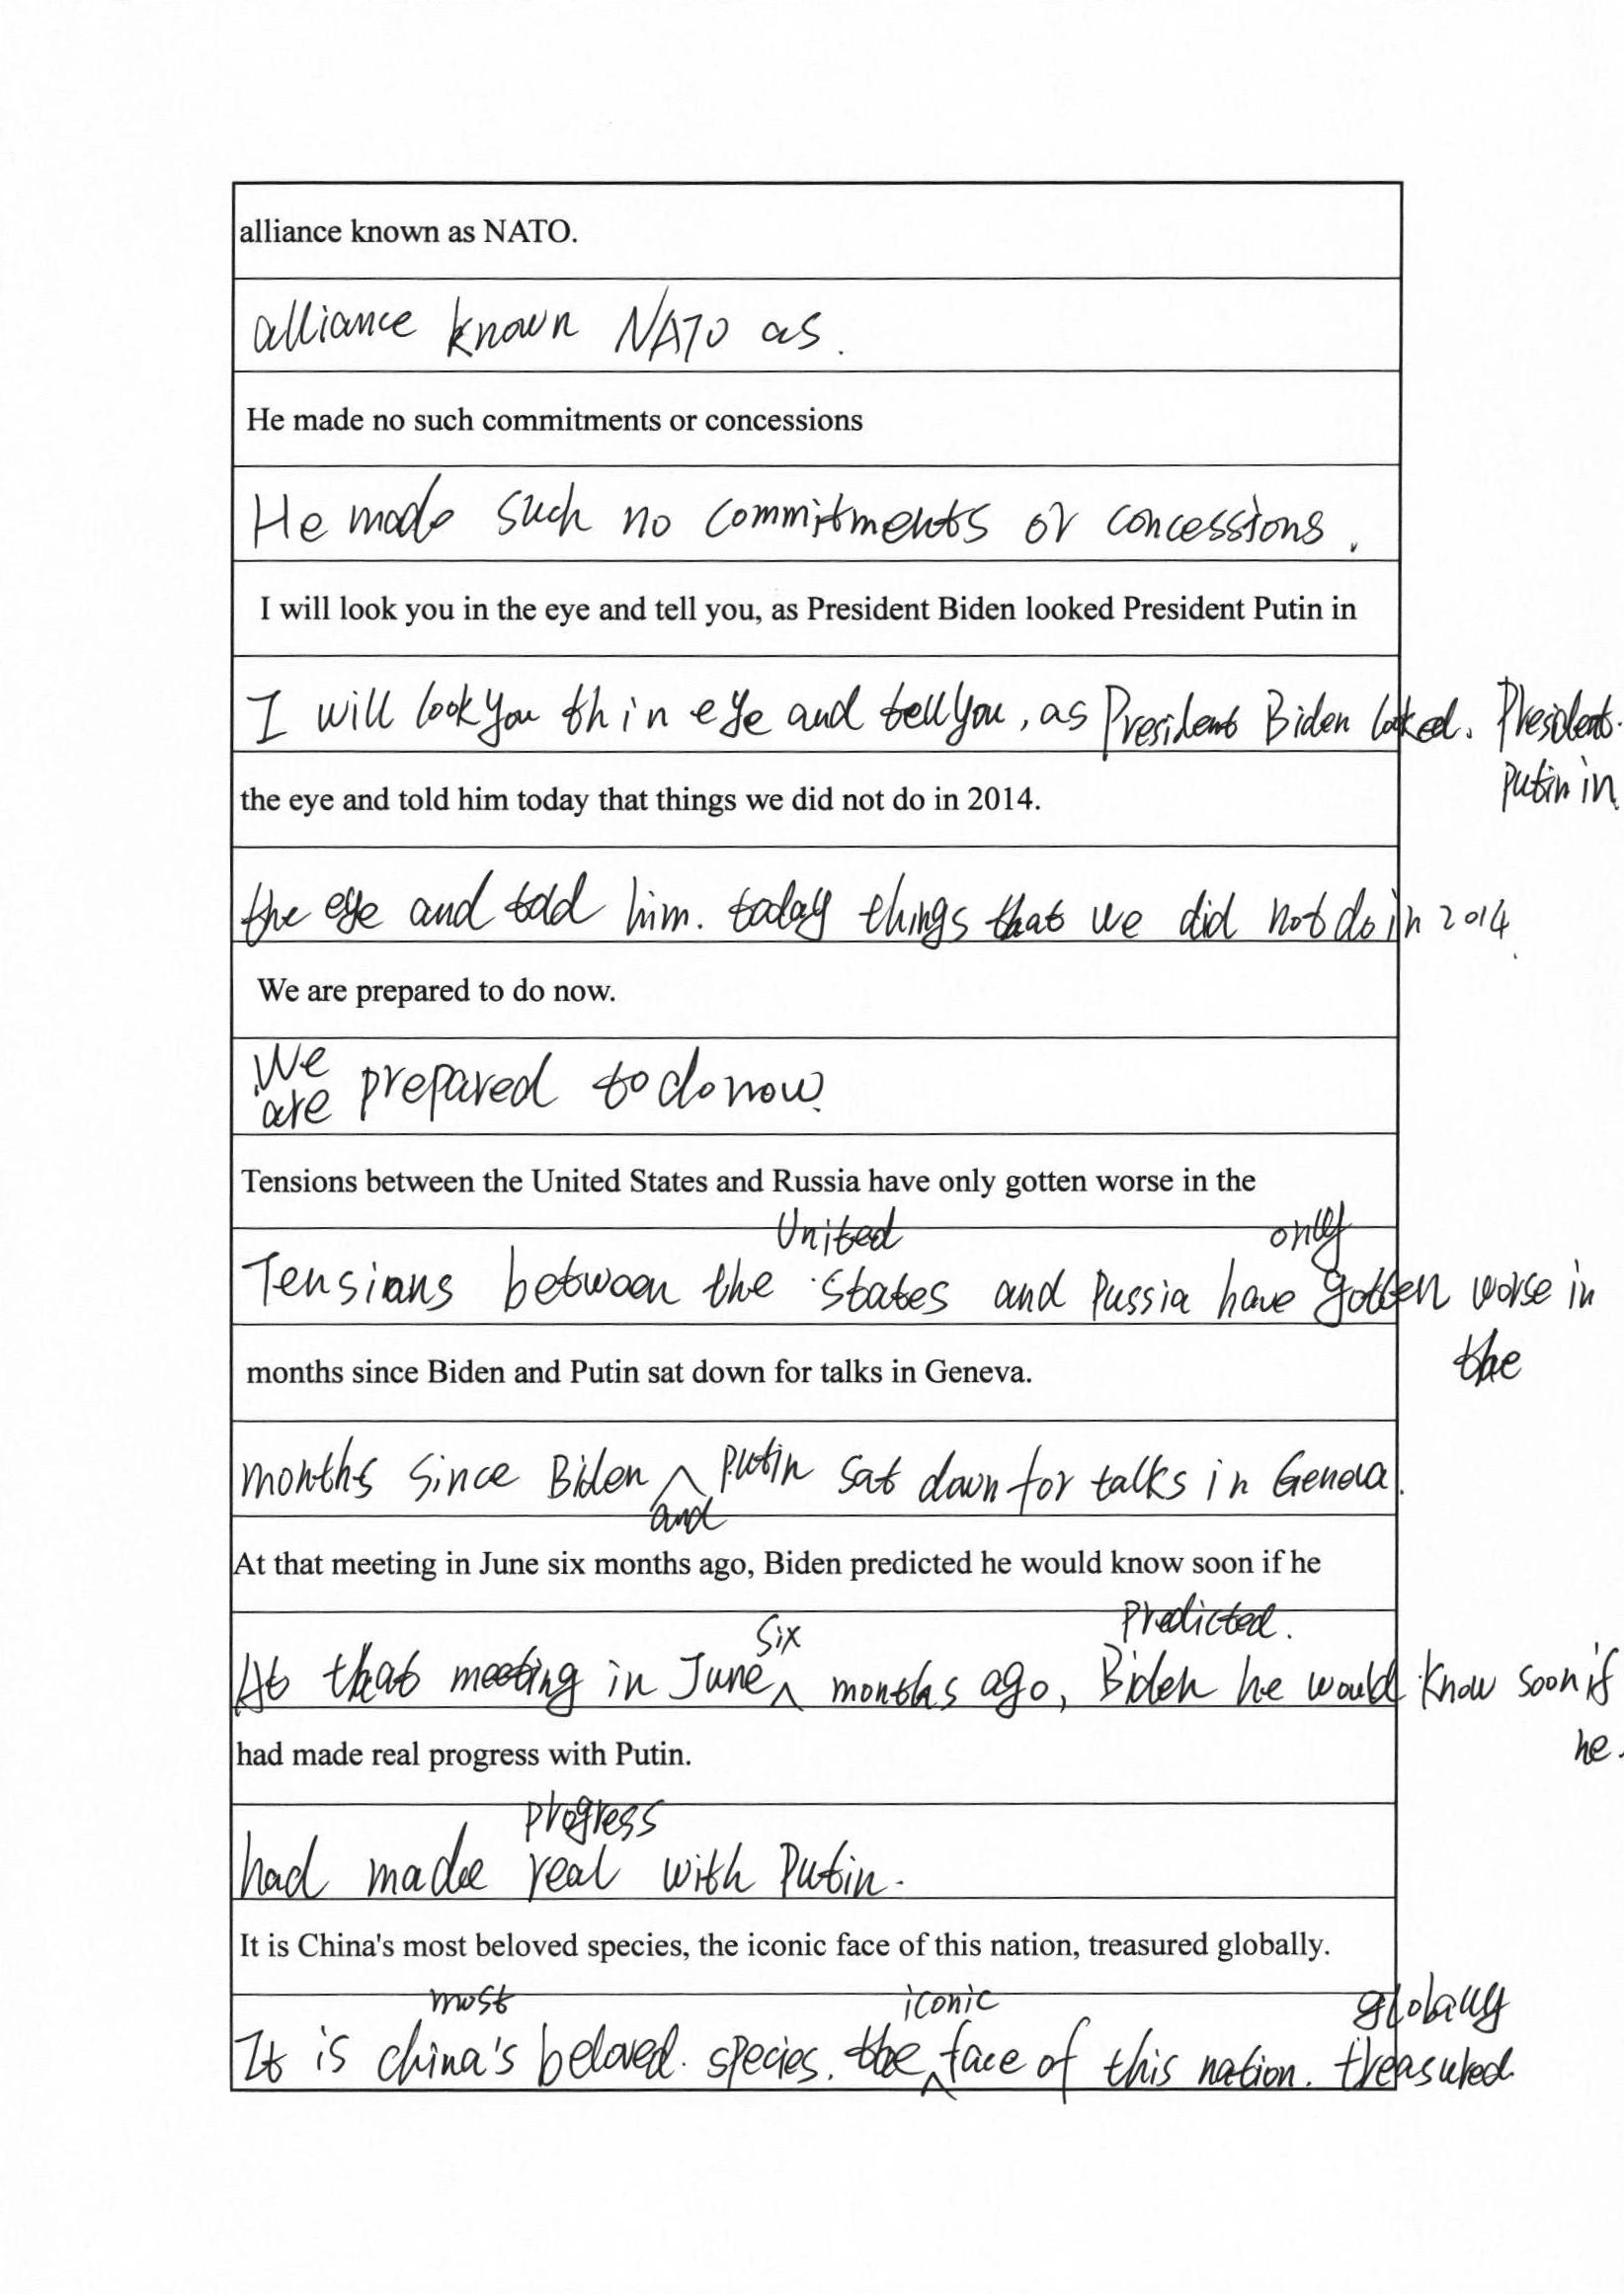 alliance known as NATO.
alliance known NATO as.
He made no such commitments or concessions
He made such no commitments or concessions.
I will look you in the eye and tell you, as President Biden looked President Putin in
I will look you th in eye and tell you, as President Biden looked. President.
Putin in
the eye and told him today that things we did not do in 2014.
the eye and told him. today things that we did not do in 2014.
We are prepared to do now.
We
are prepared to do now.
Tensions between the United States and Russia have only gotten worse in the
United only
Tensions between the States and Russia have gotten worse in
the
months since Biden and Putin sat down for talks in Geneva.
months since Biden Putin sat down for talks in Geneva.
and
At that meeting in June six months ago, Biden predicted he would know soon if he
six Predicted.
At that meeting in June months ago, Biden he would know soon if
he.
had made real progress with Putin.
progress
had made real with Putin.
It is China's most beloved species, the iconic face of this nation, treasured globally.
most iconic globally
It is china's beloved. species. the face of this nation. treasured.